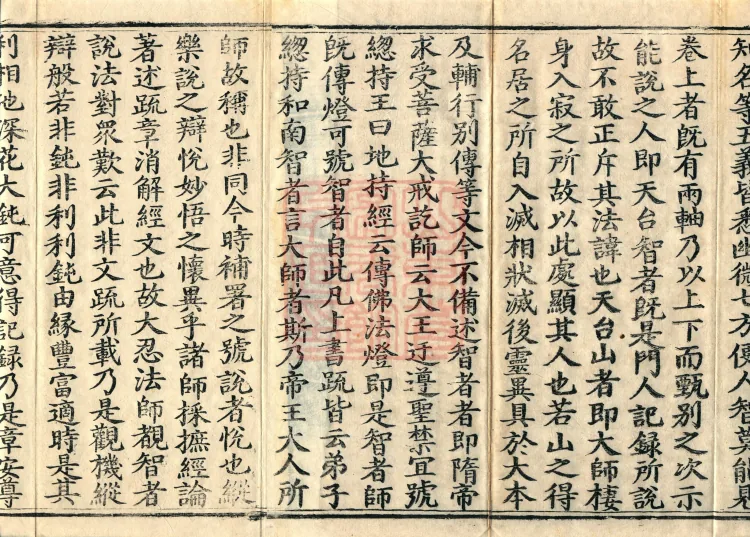 知名等五義皆悉幽微七不便人智莫能
卷上者旣有兩軸乃以上下而甄別之次示
能說之人即天台智者旣是門人記録所說
故不敢正斥其法諱也天台山者即大師棲
身入寂之所故以此處顯其人也若山之得
名居之所自入滅相狀滅後靈異具於大本
及輔行別傳等文今不備述智者者即隋帝
求受菩薩大戒訖師云大王迂遵聖禁宜號
緫持王曰地持經云傳佛法燈即是智者師
旣傳燈可號智者自此凡上書疏皆云弟子
緫持和南智者言大師者斯乃帝王大人所
師故稱也非同今時補署之號說者悅也縱
樂說之辯悅妙悟之懷異乎諸師採摭經論
著述疏章消解經文也故大忍法師覩智者
說法對衆歎云此非文疏所載乃是觀機縱
辯般若非鈍非利利鈍由縁豐富適時是其
利相池深花大鈍可意得記録乃是章安尊